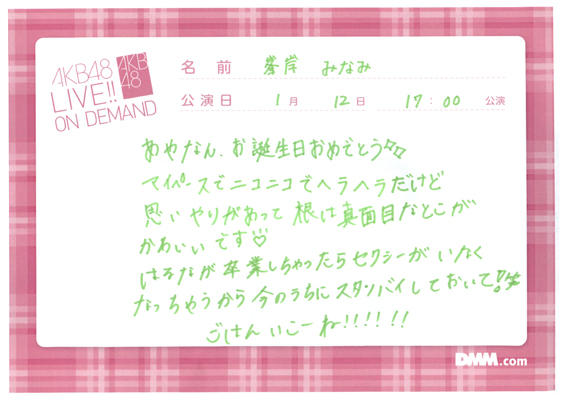 AKB48
LIVE!!
ON DEMAND
AKB
48
名前 峯岸 みなみ
公演日 1月 12日 17:00 公演
あやなん、お誕生日おめでとう
マイペースでニコニコでヘラヘラだけど
思いやりがあって 根は真面目なとこが
かわいいです♡
はるなが卒業しちゃったらセクシーがいなく
なっちゃうから今のうちにスタンバイしておいて!笑
ごはんいこーね!!!!!!
DMM.com